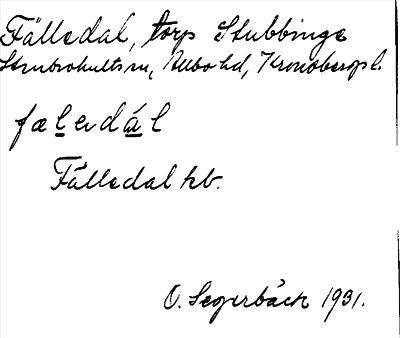 Fälledal, torp Stubbinge
Stenbrohults sn, Allbo hd, Kronobergs l.
fælerdál
Fälledal kb.
O. Segerbäck 1931.